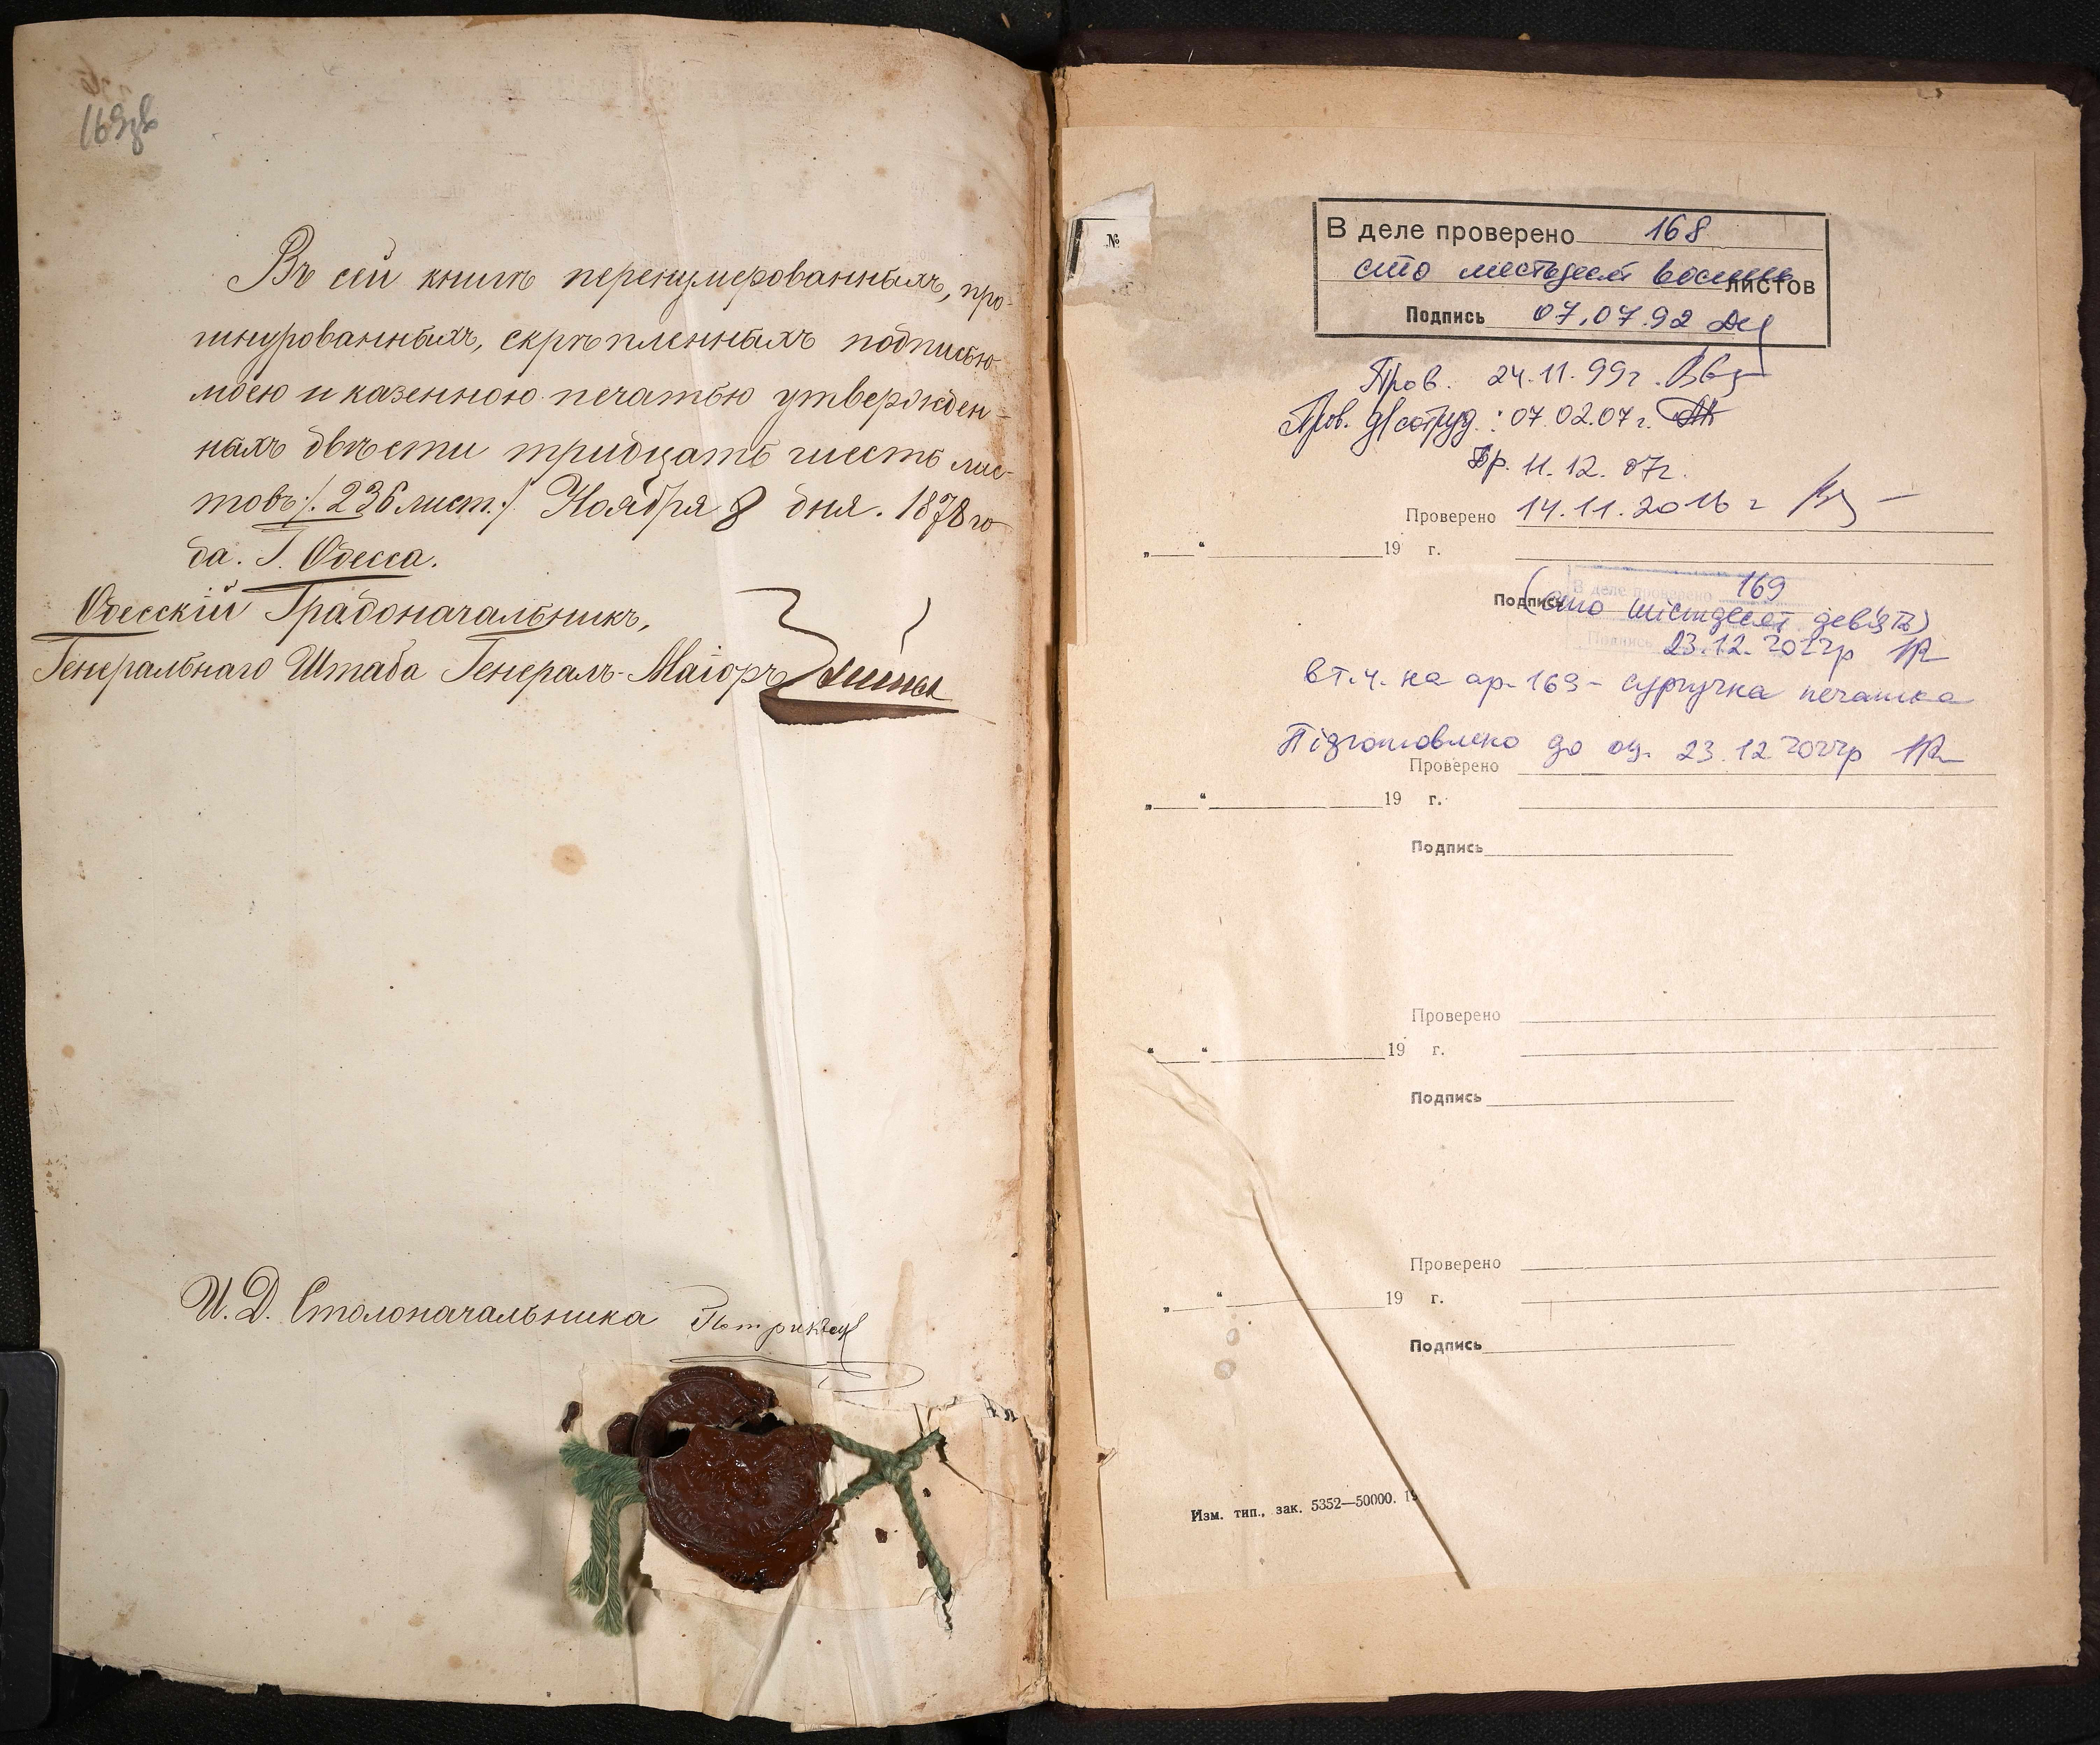 169зв
Въ сей книгѣ перенумерованныхъ, про-
шнурованныхъ, скрѣпленныхъ подписью
моею и казенною печатью утвержден-
ныхъ двѣсти тридцать шесть лис-
товъ /. 236 лист. ./ Ноября 8 дня. 1878 го
да. Г. Одесса.
Одесскій Градоначальникъ,
Генеральнаго Штаба Генералъ-Маіоръ
И. Д. Столоначальника
№
В деле проверено 168
сто шестьдесят восемь листов
Подпись 07.07.92
Пров. 24.11.99г.
Пров. 07.02.07г.
Пр. 11.12.07г.
Проверено 14.11.2016 г
„ “ 19 г.
В деле проверено 169
Подпись (сто шістдесят дев'ять)
Подпись 23.12.2022р
в т.ч. на ар. 169 - сургучна печатка
Підготовлено до оц. 23.12.2022р
Проверено
„ “ 19 г.
Подпись
Проверено
„ “ 19 г.
Подпись
Проверено
„ “ 19 г.
Подпись
Изм. тип., зак. 5352—50000. 19